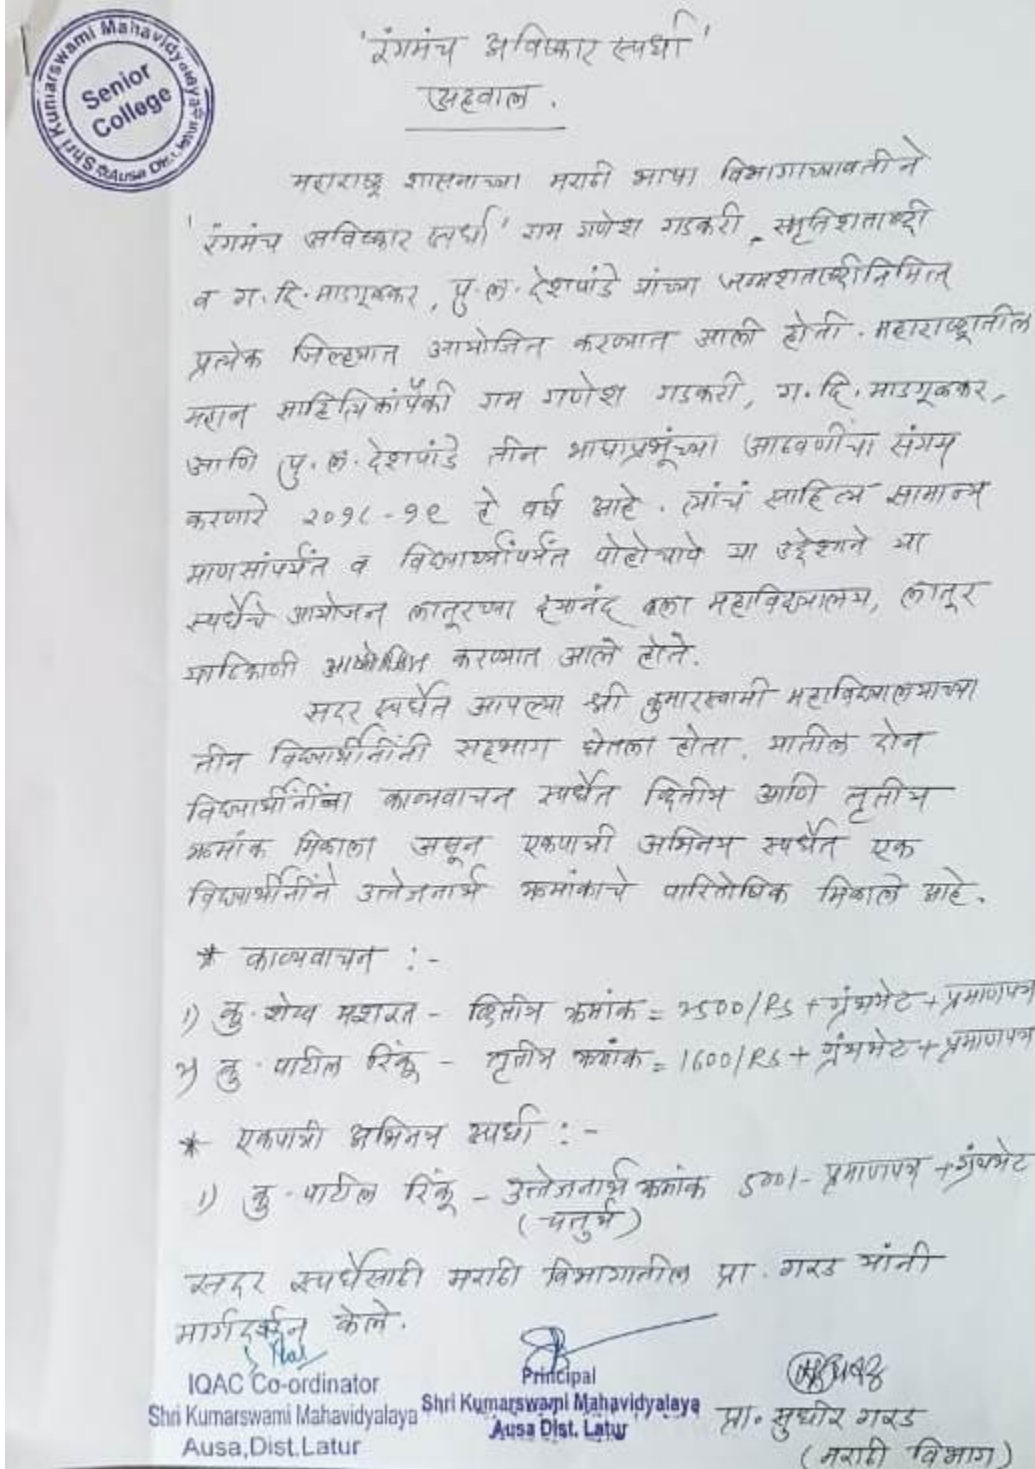 Shri Kumarswami Mahavidyalaya
Senior
College
Ausa Dist.
'रंगमंच अविष्कार स्पर्धा'
अहवाल.
महाराष्ट्र शासनाच्या मराठी भाषा विभागाच्यावतीने
'रंगमंच अविष्कार स्पर्धा' राम गणेश गडकरी, स्मृतिशताब्दी
व ग. दि. माडगूळकर, पु. ल. देशपांडे यांच्या जन्मशताब्दीनिमित्त
प्रत्येक जिल्ह्यात आयोजित करण्यात आली होती. महाराष्ट्रातील
महान साहित्यिकांपैकी राम गणेश गडकरी, ग. दि. माडगूळकर,
आणि पु. ल. देशपांडे तीन भाषाप्रभूंच्या आठवणींचा संगम
करणारे २०१८-१९ हे वर्ष आहे. त्यांचं साहित्य सामान्य
माणसांपर्यंत व विद्यार्थ्यांपर्यंत पोहोचावे या उद्देशाने या
स्पर्धेचे आयोजन लातूरच्या दयानंद कला महाविद्यालय, लातूर
याठिकाणी आयोजित करण्यात आले होते.
सदर स्पर्धेत आपल्या श्री कुमारस्वामी महाविद्यालयाच्या
तीन विद्यार्थीनींनी सहभाग घेतला होता. यातील दोन
विद्यार्थीनींना काव्यवाचन स्पर्धेत द्वितीय आणि तृतीय
क्रमांक मिळाला असून एकपात्री अभिनय स्पर्धेत एक
विद्यार्थीनींने उत्तेजनार्थ क्रमांकाचे पारितोषिक मिळाले आहे.
* काव्यवाचन :-
१) कु. शेख मशरत - द्वितीय क्रमांक = २500/Rs + ग्रंथभेट + प्रमाणपत्र
२) कु. पाटील रिंकू - तृतीय क्रमांक = 1600/Rs + ग्रंथभेट + प्रमाणपत्र
* एकपात्री अभिनय स्पर्धा :-
१) कु. पाटील रिंकू - उत्तेजनार्थ क्रमांक 500/- प्रमाणपत्र + ग्रंथभेट
(चतुर्थ)
सदर स्पर्धेसाठी मराठी विभागातील प्रा. गरड यांनी
मार्गदर्शन केले.
IQAC Co-ordinator
Shri Kumarswami Mahavidyalaya
Ausa,Dist.Latur
Principal
Shri Kumarswami Mahavidyalaya
Ausa Dist. Latur
प्रा. सुधीर गरड
(मराठी विभाग)